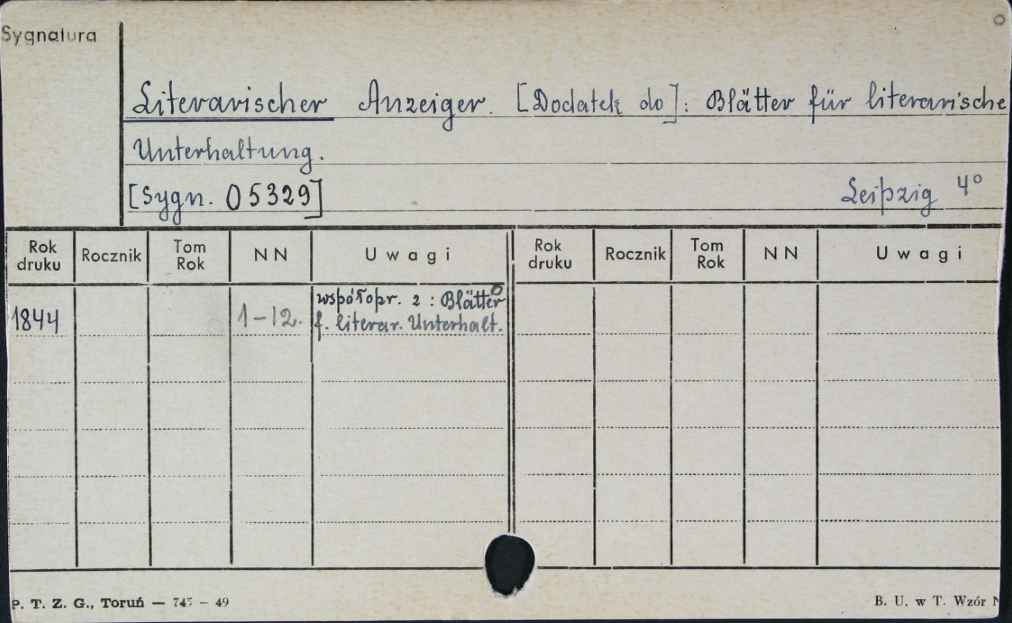 Sygnatura
Literarischer Anzeiger. [Dodatek do]: Blätter für literarische
Unterhaltung.
[Sygn. 05329]
Leipzig 4°
Rok druku Rocznik Tom Rok NN Uwagi Rok druku Rocznik Tom Rok NN Uwagi
1844 1-12. współopr. z : Blätter
f. literar. Unterhalt.
P. T. Z. G., Toruń — 747 — 49
B. U. w T. Wzór